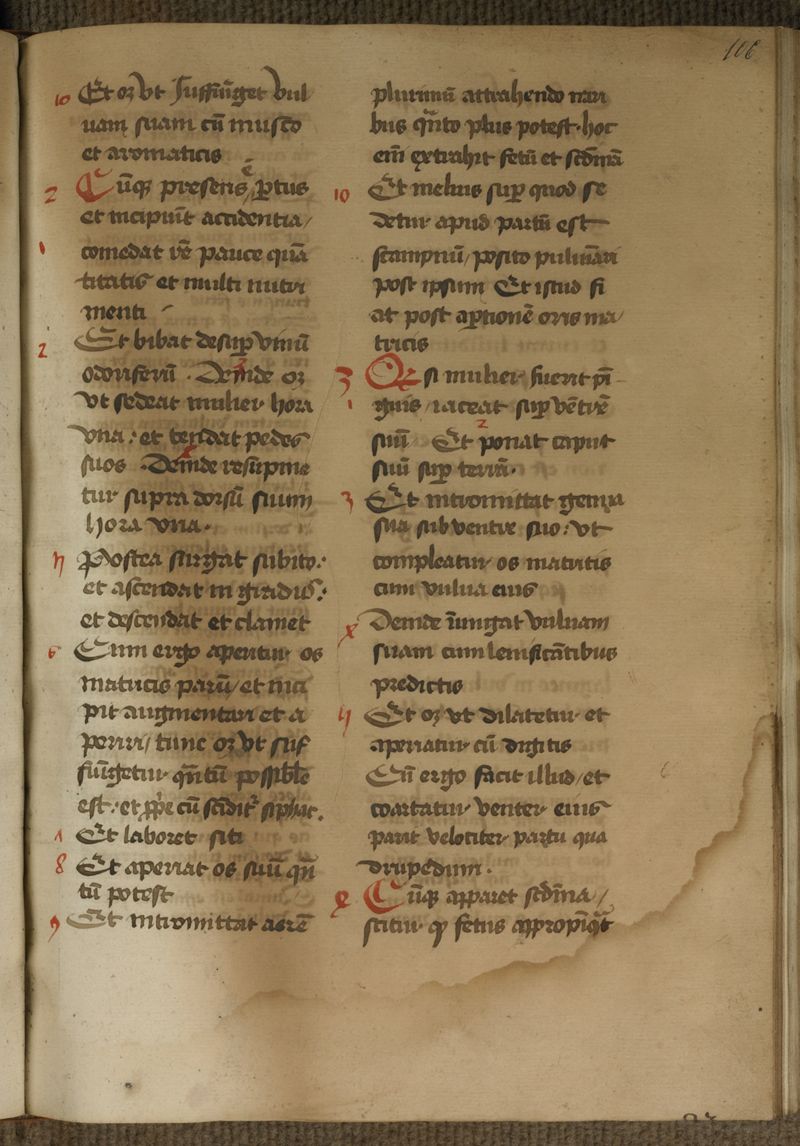 106
10 Et oꝫ vt suffumiget vul
uam suam cū musco
et aromaticis
2 Cūqꝫ presens ē ꝑtus
et incipiūt accidentia/
1 comedat vē pauce quā
titatis et multi nutri
menti
2 Et bibat desuꝑ vinū
odoriferū . Deinde oꝫ
vt sedeat mulier hora
vna : et tendat pedes
suos . Deinde resupine
tur supra dorsū suum
hora vna .
4 Postea surgat subito :
et ascendat in gradus :
et descendat et clamet
6 Cum ergo aperitur os
matricis parū / et inci
pit augmentari et a
periri / tunc oꝫ vt suf
fūgetur qn̄tū possibile
est : et
Et laboret siti
8 Et aperiat os suū qn̄
tū potest
9 Et intromittat aerē
plurimū attrahendo nari
bus qn̄to plus potest . hoc
em̄ extrahit fetū et scdīnā
10 Et melius suꝑ quod se
detur apud partū est
scampnū / posito puluinari
post ipsum Et istud fi
at post aꝑtionē oris ma/
tricis
3 Qꝫ si mulier fuerit pī
1 guis / iaceat suꝑ vētrē
suū 2 Et ponat caput
suū suꝑ terrā .
3 Et intromittat genua
sua sub ventre suo : vt
compleatur os matricis
cum vulua eius
Deinde īungat vuluam
suam cum lenificātibus
predictis
4 Et oꝫ vt dilatetur et
aperiatur cū digitis
Cū ergo facit illud / et
coartatur venter eius
parit velociter partu qua
drupedum .
Cūqꝫ apparet scdīna /
scitur ꝙ fetus appropīqt